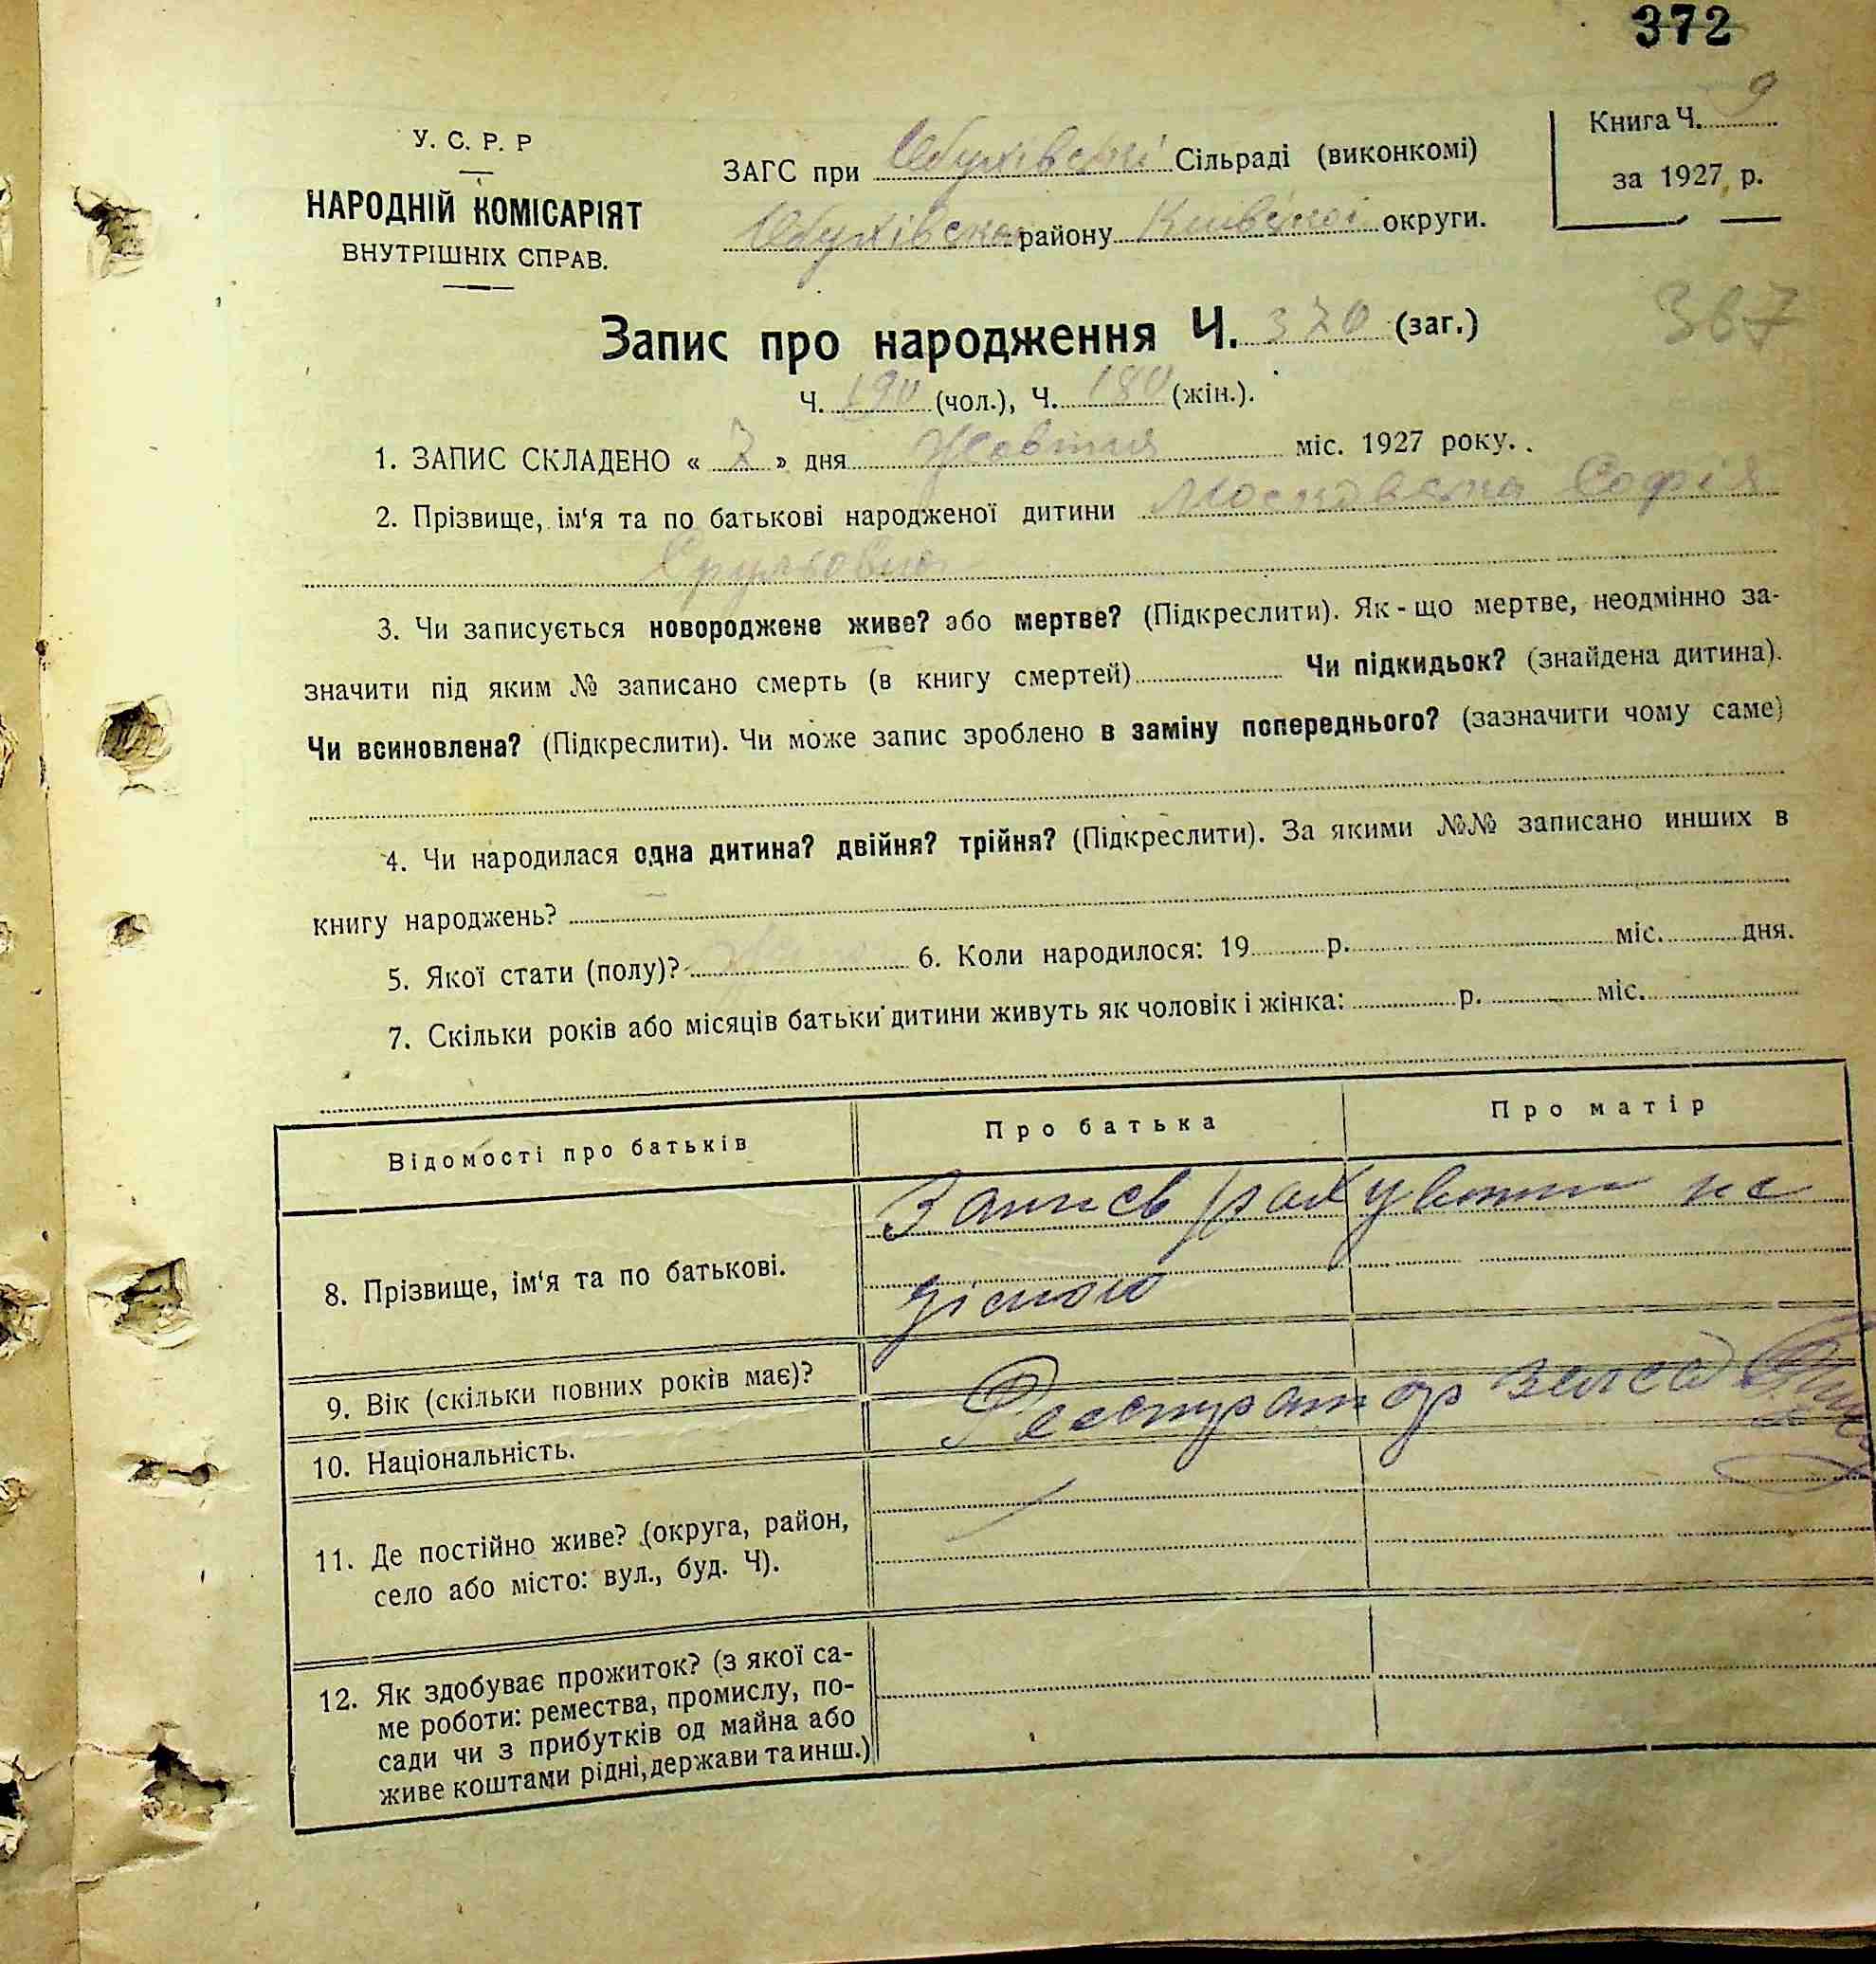 372
У. С. Р. Р
НАРОДНІЙ КОМІСАРІЯТ
ВНУТРІШНІХ СПРАВ.
ЗАГС при Обухівській Сільраді (виконкомі)
Обухівськ району Київської округи.
Книга Ч. 9
за 1927 р.
Запис про народження Ч. 370 (заг.)
367
Ч. 190 (чол.), Ч. 180 (жін.).
1. ЗАПИС СКЛАДЕНО « 7 » дня Жовтня міс. 1927 року.
2. Прізвище, ім‘я та по батькові народженої дитини Московська Софія
Срульовна
3. Чи записується новороджене живе? або мертве? (Підкреслити). Як-що мертве, неодмінно за-
значити під яким № записано смерть (в книгу смертей) Чи підкидьок? (знайдена дитина).
Чи всиновлена? (Підкреслити). Чи може запис зроблено в заміну попереднього? (зазначити чому саме)
4. Чи народилася одна дитина? двійня? трійня? (Підкреслити). За якими №№ записано инших в
книгу народжень?
5. Якої стати (полу)? 6. Коли народилося: 19 р. міс. дня.
7. Скільки років або місяців батьки дитини живуть як чоловік і жінка: р. міс.
Відомості про батьків Про батька Про матір
Запись рахувати не
дісною
8. Прізвище, ім‘я та по батькові.
9. Вік (скільки повних років має)?
Реєстратор загса
10. Національність.
11. Де постійно живе? (округа, район,
село або місто: вул., буд. Ч).
12. Як здобуває прожиток? (з якої са-
ме роботи: ремества, промислу, по-
сади чи з прибутків од майна або
живе коштами рідні, держави та инш.)